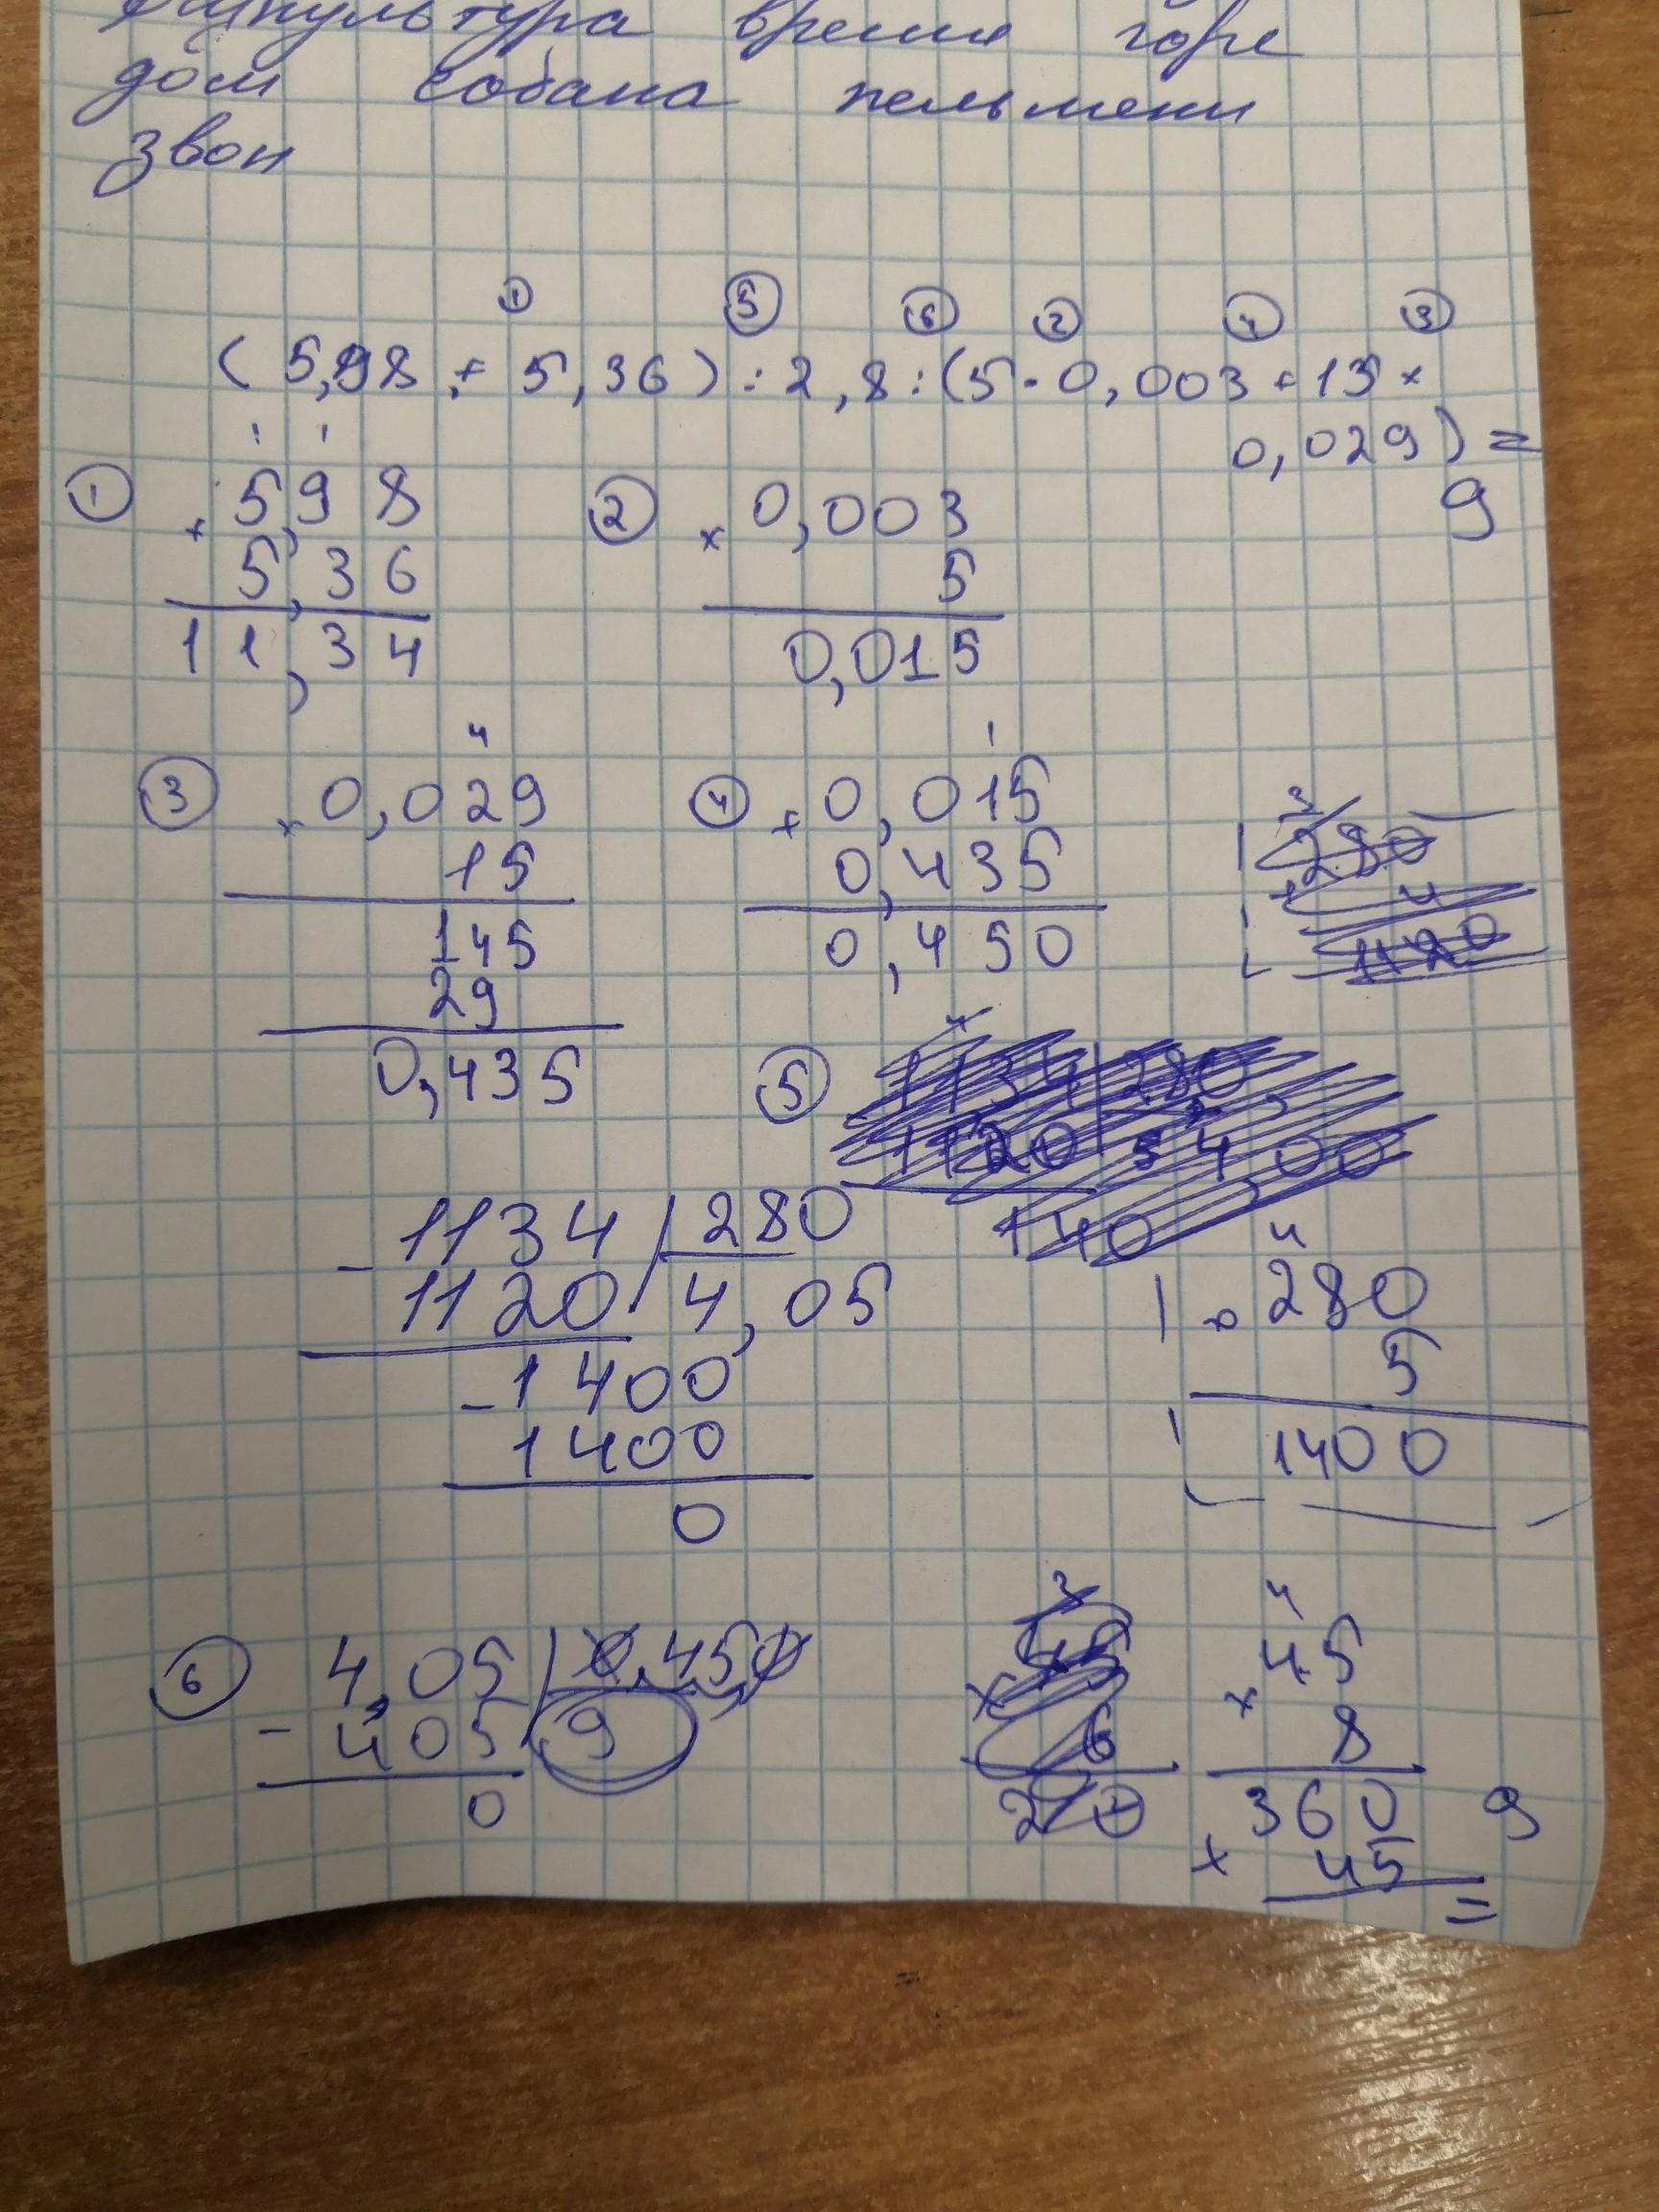 культура время горе
дом собака пельмени
звон
① ⑤ ⑥ ② ④ ③
(5,98 + 5,36) : 2,8 : (5 · 0,003 + 15 ×
0,029) =
9
① 1 1
+ 5,98
5,36
11,34
② × 0,003
5
0,015
③ 4
× 0,029
15
145
29
0,435
④ 1
+ 0,015
0,435
0,450
3
280
4
1120
⑤ 1134 | 280
1120
140
- 1134 | 280
1120 | 4,05
- 1400
1400
0
4
280
5
1400
⑥ 4,05 | 0,450
- 405 | 9
0
3
45
× 6
4
45
× 8
360 9
× 45
=